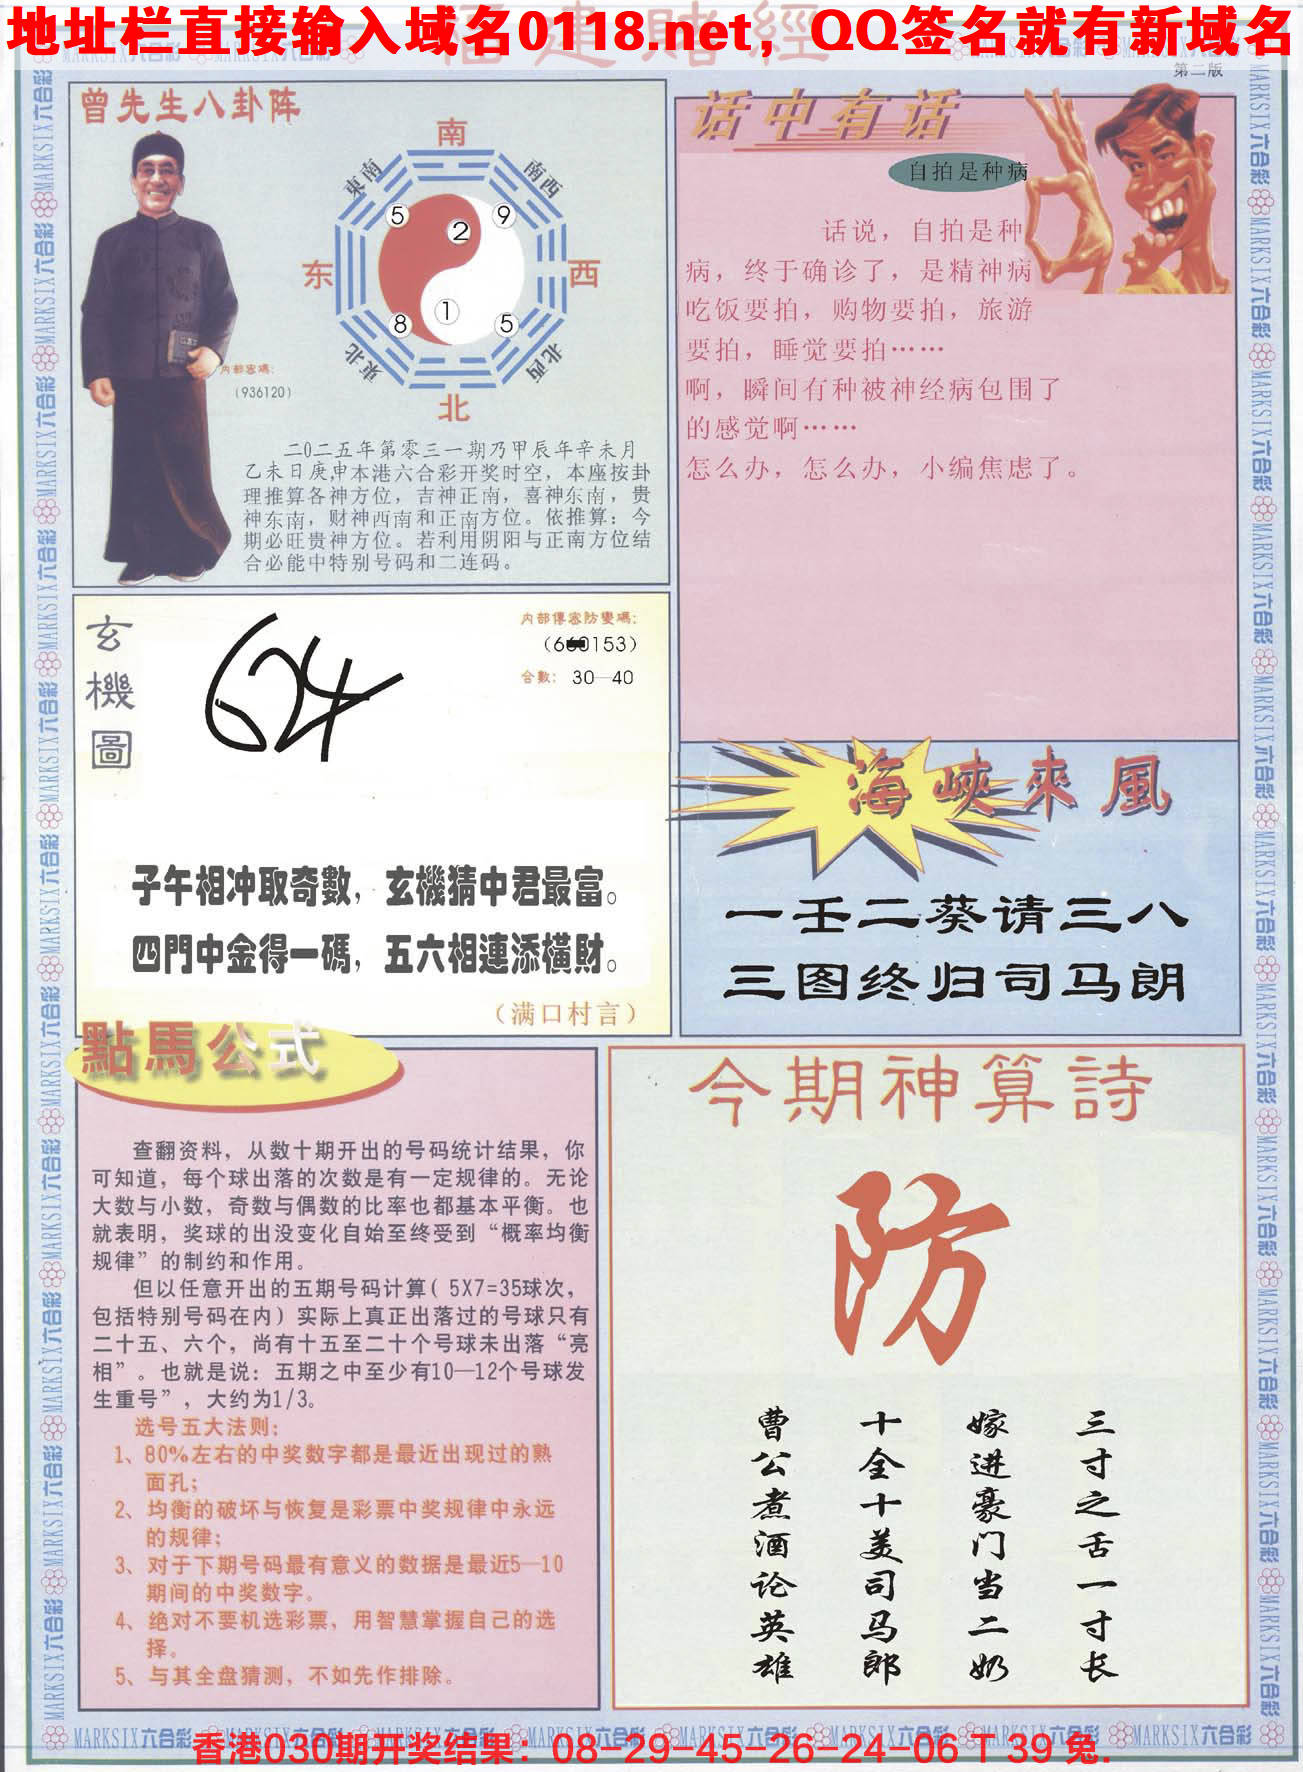 福建賭經
地址栏直接输入域名0118.net，QQ签名就有新域名
第二版
曾先生八卦阵
南
東南
南西
5
9
2
东
西
1
8
5
東北
北西
北
内部密碼：
（936120）
二〇二五年第零三一期乃甲辰年辛未月
乙未日庚申本港六合彩开奖时空，本座按卦
理推算各神方位，吉神正南，喜神东南，贵
神东南，财神西南和正南方位。依推算：今
期必旺贵神方位。若利用阴阳与正南方位结
合必能中特别号码和二连码。
话中有话
自拍是种病
话说，自拍是种
病，终于确诊了，是精神病
吃饭要拍，购物要拍，旅游
要拍，睡觉要拍……
啊，瞬间有种被神经病包围了
的感觉啊……
怎么办，怎么办，小编焦虑了。
玄機圖
内部傳密防變碼：
0153）
合數： 30—40
子午相冲取奇數，玄機猜中君最富。
四門中金得一碼，五六相連添橫財。
（满口村言）
海峽來風
一壬二葵请三八
三图终归司马朗
點馬公式
查翻资料，从数十期开出的号码统计结果，你
可知道，每个球出落的次数是有一定规律的。无论
大数与小数，奇数与偶数的比率也都基本平衡。也
就表明，奖球的出没变化自始至终受到“概率均衡
规律”的制约和作用。
但以任意开出的五期号码计算（5X7=35球次，
包括特别号码在内）实际上真正出落过的号球只有
二十五、六个，尚有十五至二十个号球未出落“亮
相”。也就是说：五期之中至少有10—12个号球发
生重号”，大约为1/3。
选号五大法则：
1、80%左右的中奖数字都是最近出现过的熟
面孔；
2、均衡的破坏与恢复是彩票中奖规律中永远
的规律；
3、对于下期号码最有意义的数据是最近5—10
期间的中奖数字。
4、绝对不要机选彩票，用智慧掌握自己的选
择。
5、与其全盘猜测，不如先作排除。
今期神算詩
防
三寸之舌一寸长
嫁进豪门当二奶
十全十美司马郎
曹公煮酒论英雄
MARKSIX六合彩
香港030期开奖结果：08-29-45-26-24-06 T 39 兔.